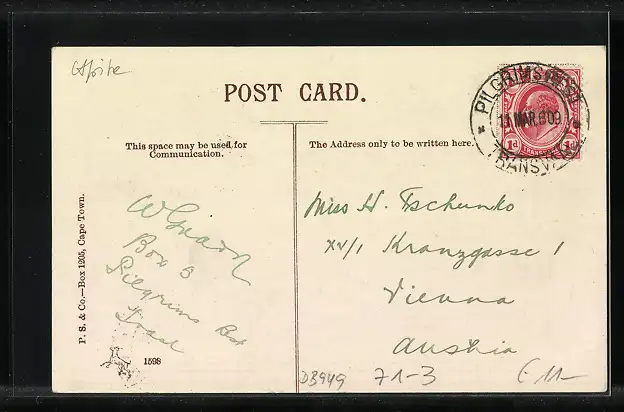 POST CARD.
PILGRIMS REST
11 MAR. 09
TRANSVAAL
1d 1d
This space may be used for
Communication.
The Address only to be written here.
Box 3
Pilgrims Rest
Miss H. Tschunko
XV/1 Kranzgasse 1
Vienna
Austria
P. S. & Co.—Box 1205, Cape Town.
1598
DB949
71-3
£11-